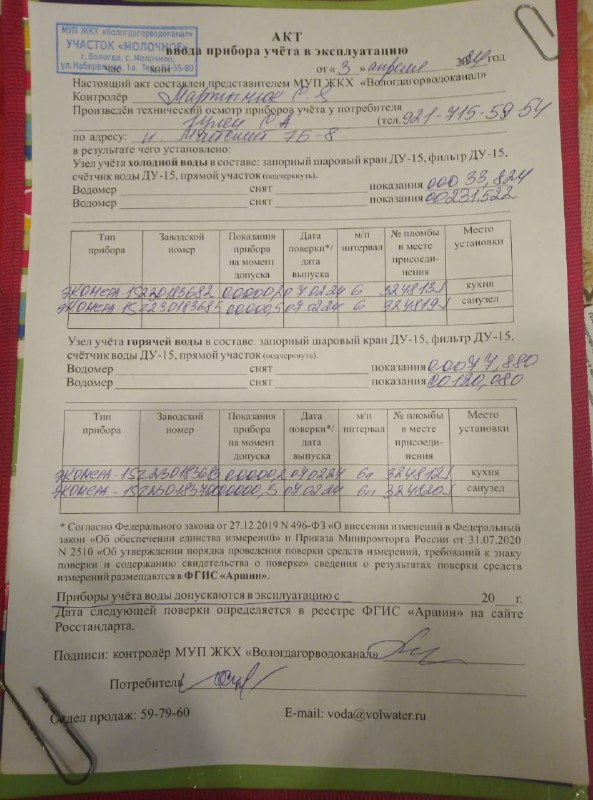 МУП ЖКХ «Вологдагорводоканал»
УЧАСТОК «МОЛОЧНОЕ»
г. Вологда, с. Молочное,
ул. Набережная, 1а. Тел. 52-55-80
АКТ
ввода прибора учёта в эксплуатацию
час мин от « 3 » апреля 2024 год
Настоящий акт составлен представителем МУП ЖКХ «Вологдагорводоканал»
Контролёр
Произведён технический осмотр приборов учёта у потребителя
(тел. 921-715-59 54
по адресу: 7Б-8
в результате чего установлено:
Узел учёта холодной воды в составе: запорный шаровый кран ДУ-15, фильтр ДУ-15,
счётчик воды ДУ-15, прямой участок (подчеркнуть).
Водомер снят показания 00033,824
Водомер снят показания 00231,522
Тип прибора Заводской номер Показания прибора на момент допуска Дата поверки*/ дата выпуска м/п интервал № пломбы в месте присоеди- нения Место установки
ЭКОМЕРА-15 07.02.24 6 кухня
ЭКОМЕРА-15 07.02.24 6 санузел
Узел учёта горячей воды в составе: запорный шаровый кран ДУ-15, фильтр ДУ-15,
счётчик воды ДУ-15, прямой участок (подчеркнуть).
Водомер снят показания 00077,880
Водомер снят показания 00120,080
Тип прибора Заводской номер Показания прибора на момент допуска Дата поверки*/ дата выпуска м/п интервал № пломбы в месте присоеди- нения Место установки
ЭКОМЕРА-15 кухня
ЭКОМЕРА-15 санузел
* Согласно Федерального закона от 27.12.2019 N 496-ФЗ «О внесении изменений в Федеральный
закон «Об обеспечении единства измерений» и Приказа Минпромторга России от 31.07.2020
N 2510 «Об утверждении порядка проведения поверки средств измерений, требований к знаку
поверки и содержанию свидетельства о поверке» сведения о результатах поверки средств
измерений размещаются в ФГИС «Аршин».
Приборы учёта воды допускаются в эксплуатацию с 20 г.
Дата следующей поверки определяется в реестре ФГИС «Аршин» на сайте
Росстандарта.
Подписи: контролёр МУП ЖКХ «Вологдагорводоканал»
Потребитель
Отдел продаж: 59-79-60 E-mail: voda@volwater.ru